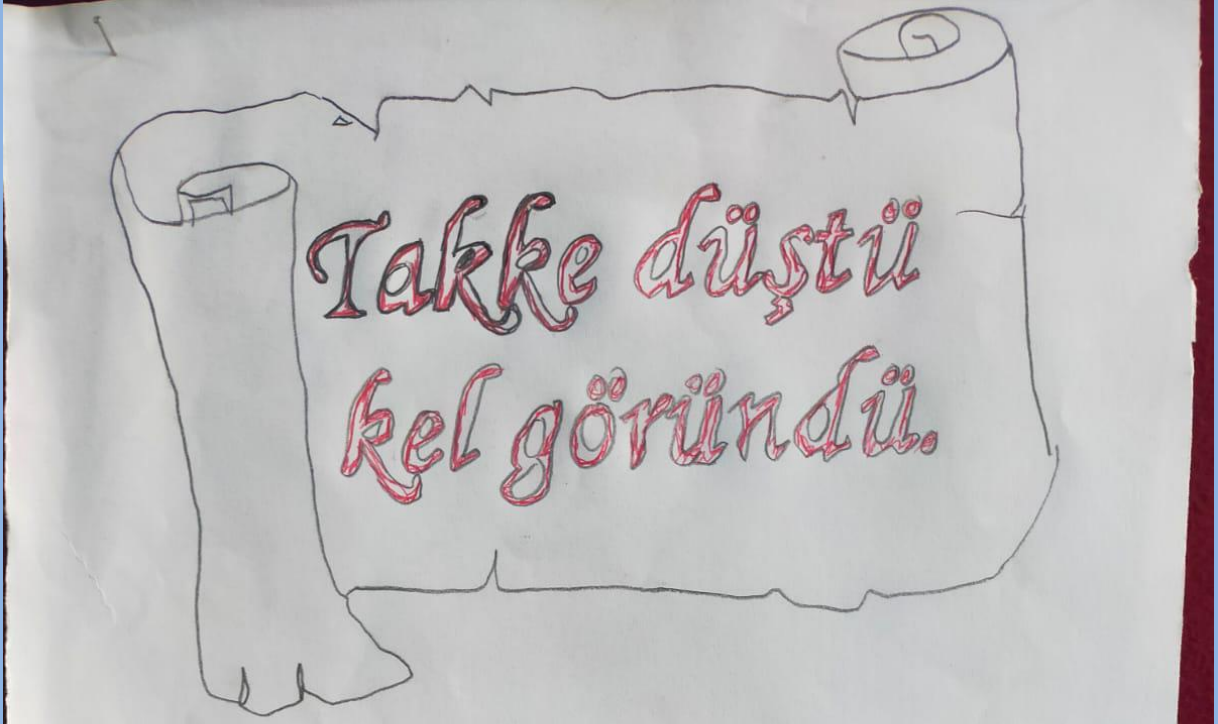 Takke düştü
kel göründü.